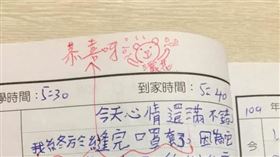 恭喜呀
學時間：5=30
到家時間：5=40
今天心情還滿不錯
年
我終於縫完口罩套了，因為它